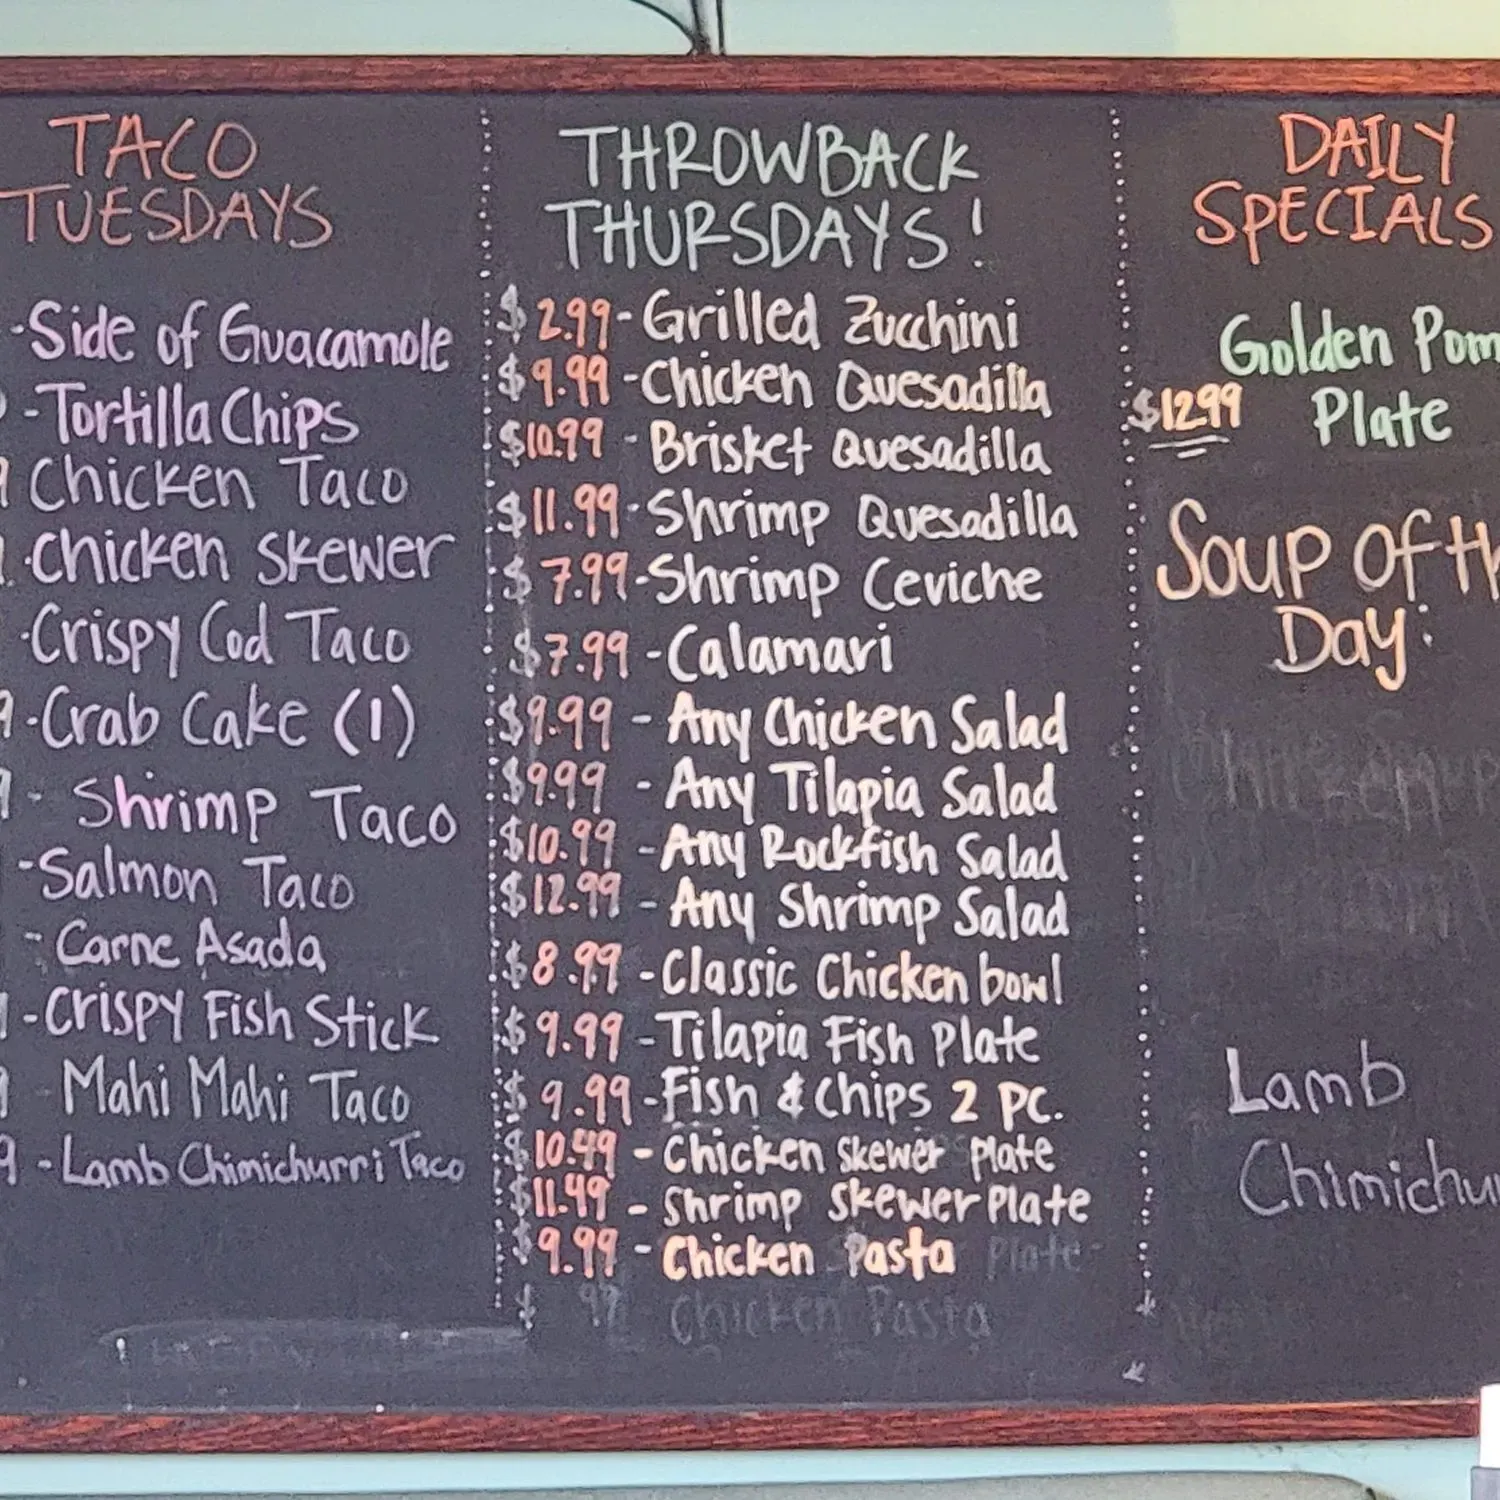 TACO
TUESDAYS
-Side of Guacamole
-Tortilla Chips
Chicken Taco
-Chicken Skewer
-Crispy Cod Taco
9-Crab Cake (1)
- Shrimp Taco
-Salmon Taco
-Carne Asada
-Crispy Fish Stick
Mahi Mahi Taco
9-Lamb Chimichurri Taco
THROWBACK
THURSDAYS!
$2.99-Grilled Zucchini
$9.99-Chicken Quesadilla
$10.99-Brisket Quesadilla
$11.99-Shrimp Quesadilla
$7.99-Shrimp Ceviche
$7.99-Calamari
$9.99-Any Chicken Salad
$9.99-Any Tilapia Salad
$10.99-Any Rockfish Salad
$12.99-Any Shrimp Salad
$8.99-Classic Chicken bowl
$9.99-Tilapia Fish Plate
$9.99-Fish & Chips 2 pc.
$10.49-Chicken Skewer Plate
$11.49-Shrimp Skewer Plate
$9.99-Chicken Pasta Plate
$ 99 - Chicken Pasta
DAILY
SPECIALS
Golden Pom
$12.99 Plate
Soup of th
Day:
Lamb
Chimichu